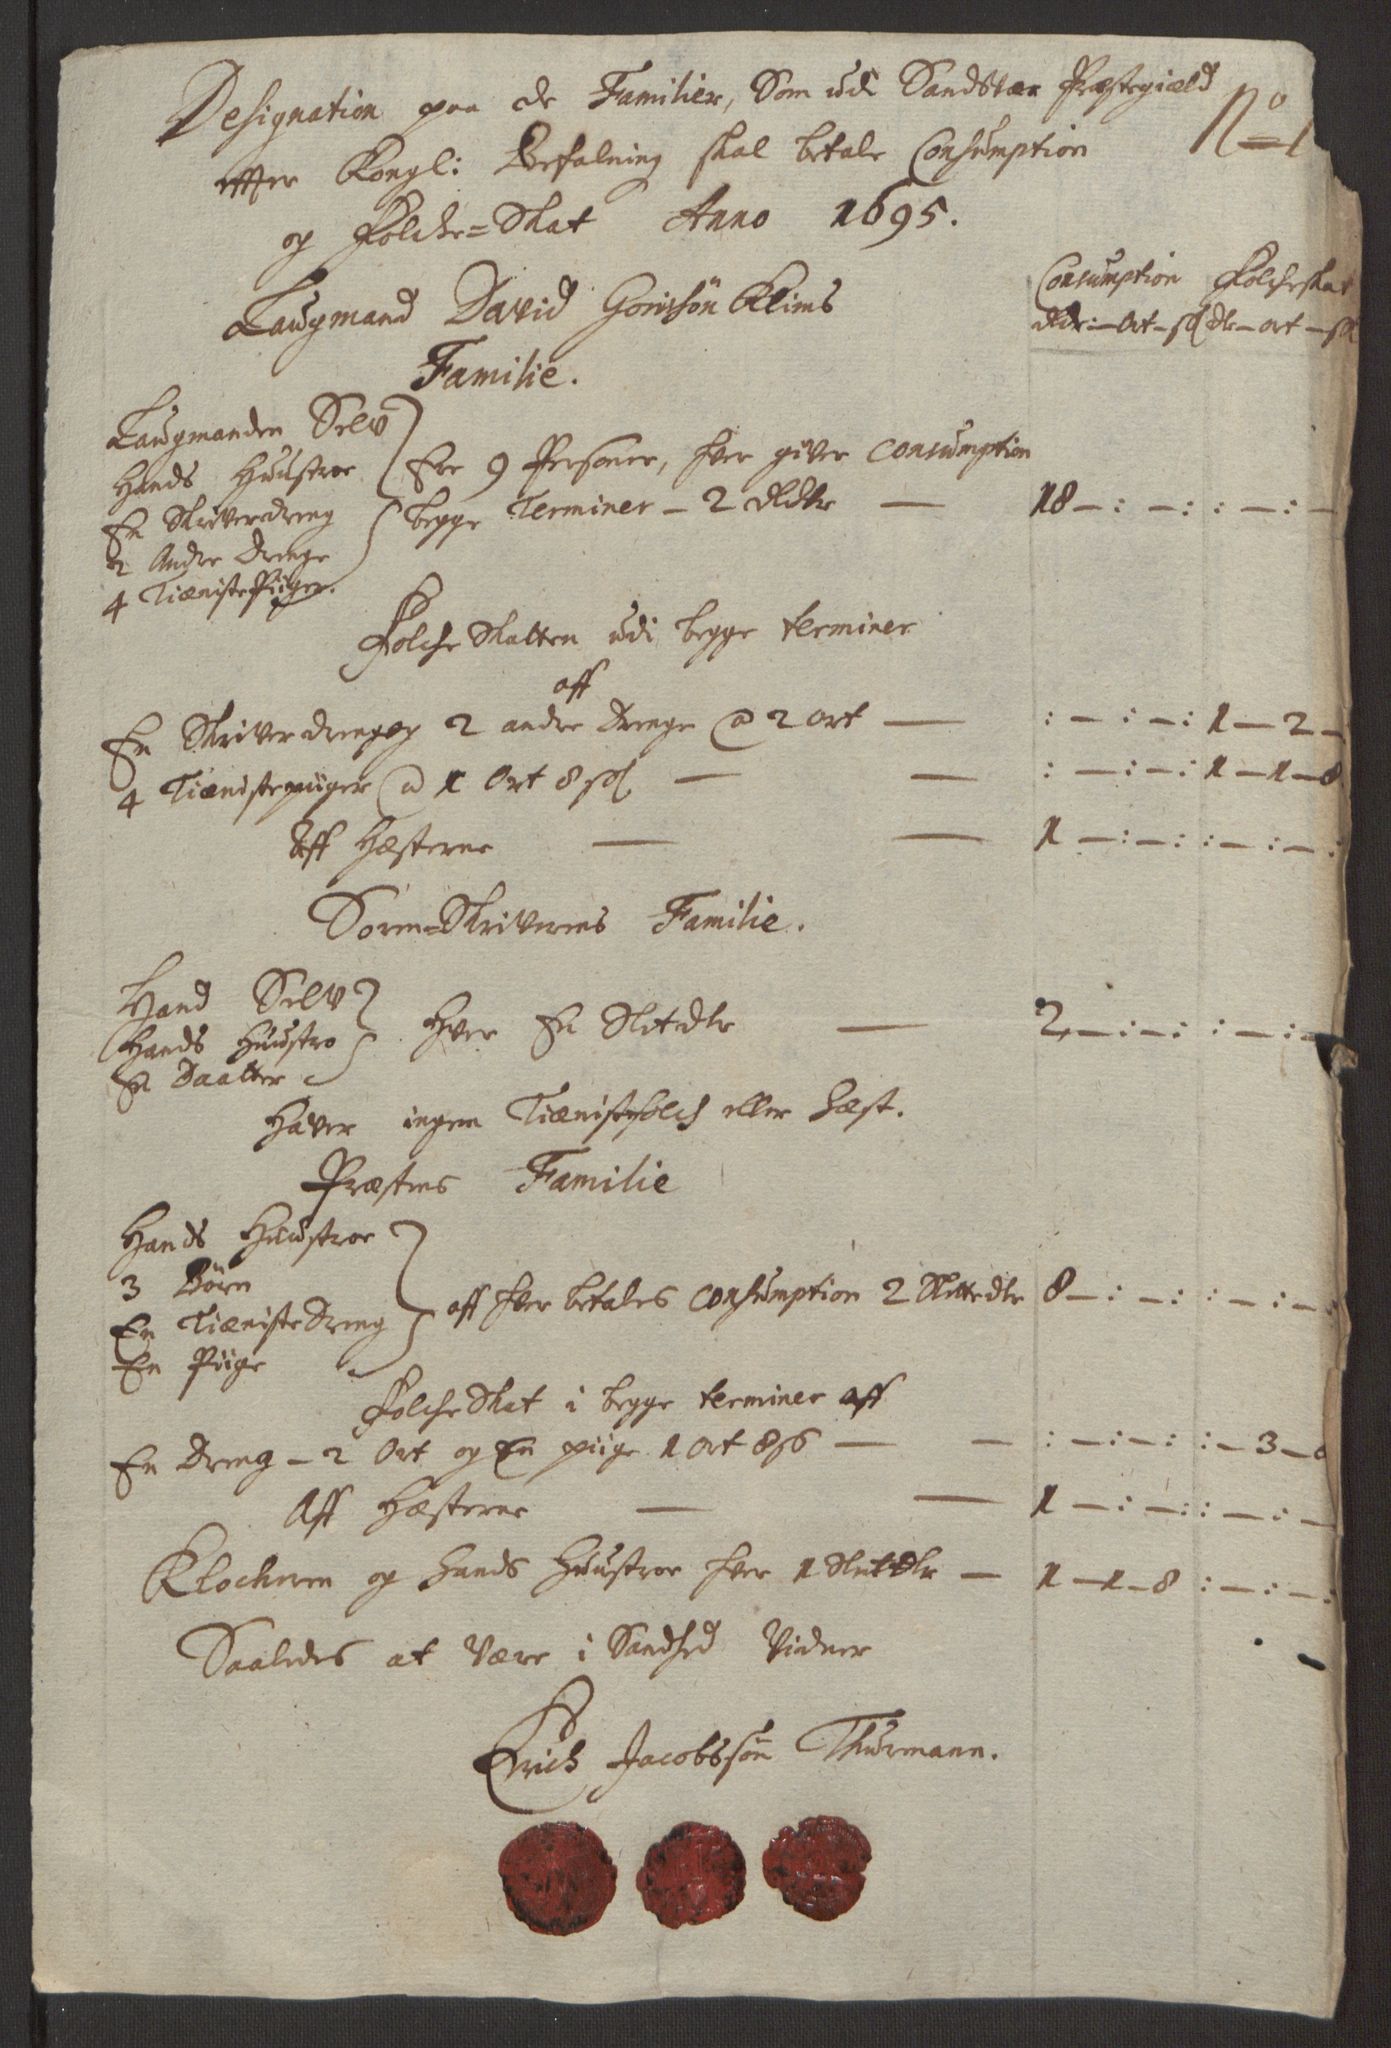 Designation paa de Familier, Som udi Sandstær Præstegiæld
No 1
effter Kongl: Befalning skal betale Consumption
og Folche=Skat Anno 1695.
Laugmand David Gorissøn Klims
Familie.
Consumption Folcheskat
dlr:—Ort—sl dlr—ort—sl
Laugmanden Selv
Hands Huustroe
En Skriverdreng
2 Andre Drenge
4 TienistePiiger.
Ere 9 Personer, hver giver consumption
begge Terminer — 2 Sldlr — 18 — : — : : — : —
Folche Skatten udi begge terminer
aff
En Skriverdreng og 2 andre Drenge @ 2 ort — : — : — : 1 — 2 —
4 Tienistepiiger @ 1 Ort 8 sl — — : — : — : 1 — 1 — 8
Aff Hæsterne — — 1 — : — : : — : — :
Soren=Skriverens Familie.
Hand Selv
Hands Huustro
En Daatter
Hver En Sletdlr — 2 — : — : : — : —
Haver ingen Tienistefolch eller Hæst.
Præstens Familie
Hands Huustroe
3 Børn
En TienisteDreng
En Piige
aff hver betales Consumption 2 Slettedlr 8 — : — : : — : — :
FolcheSkat i begge terminer aff
En Dreng — 2 Ort og En piige 1 Ort 8 s — — : — : — : : — 3 — 8
Aff Hæsterne — — 1 — : — : : — : —
Klocheren og Hands Huustroe hver 1 Sletdlr — 1 — 1 — 8 : — : — :
Saaledes at Være i Sandhed Vidner
Erich Jacobssøn Thurmann.